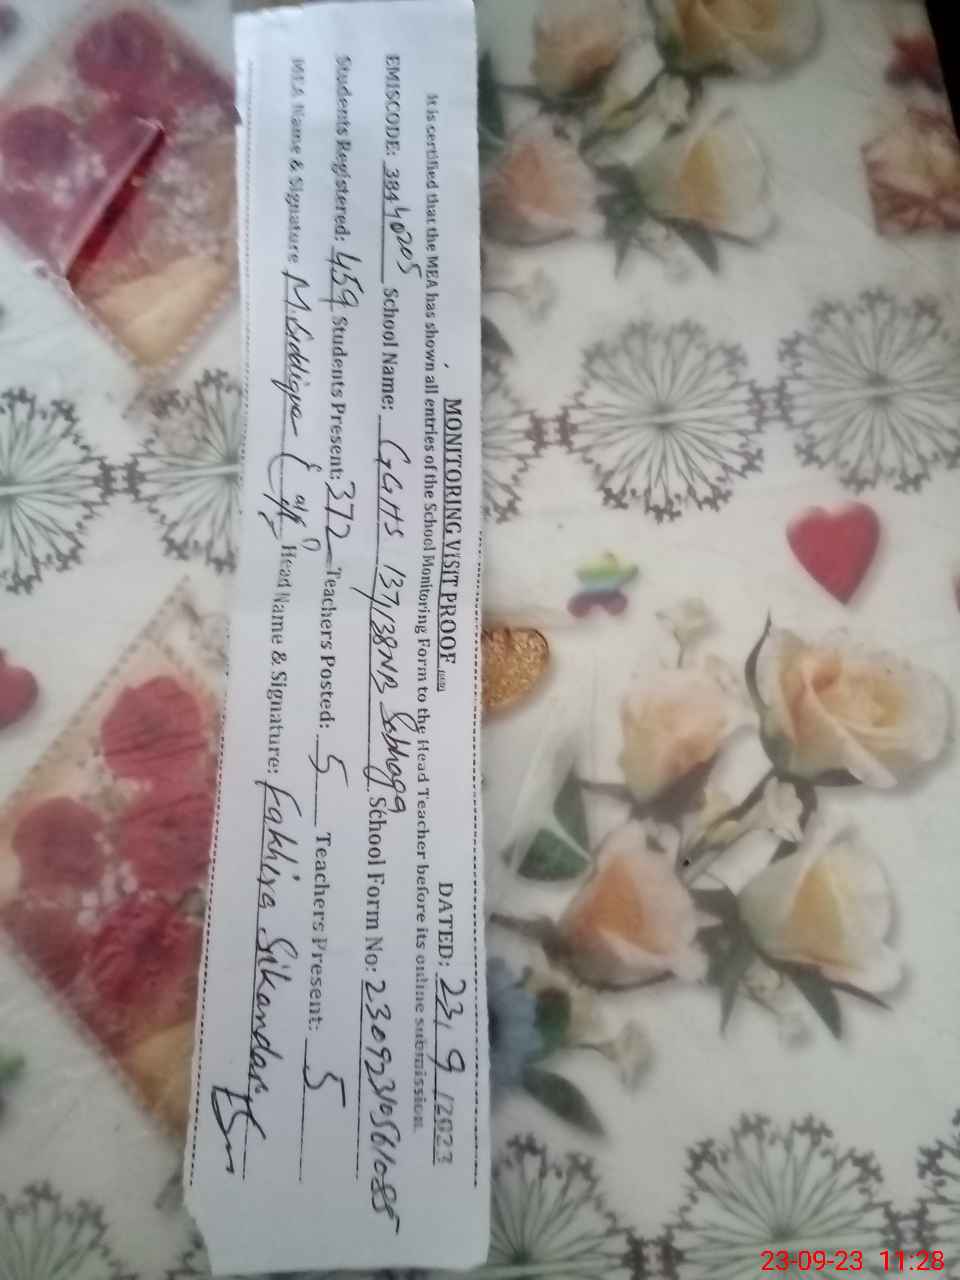 MONITORING VISIT PROOF DATED: 23, 9 /2023
It is certified that the MEA has shown all entries of the School Monitoring Form to the Head Teacher before its online submission.
EMISCODE: 38440205 School Name: GGHS 137/138NB School Form No: 23092310561085
Students Registered: 459 Students Present: 372 Teachers Posted: 5 Teachers Present: 5
MEA Name & Signature M. Siddique Head Name & Signature: Fakhira Sikandar
23-09-23 11:28